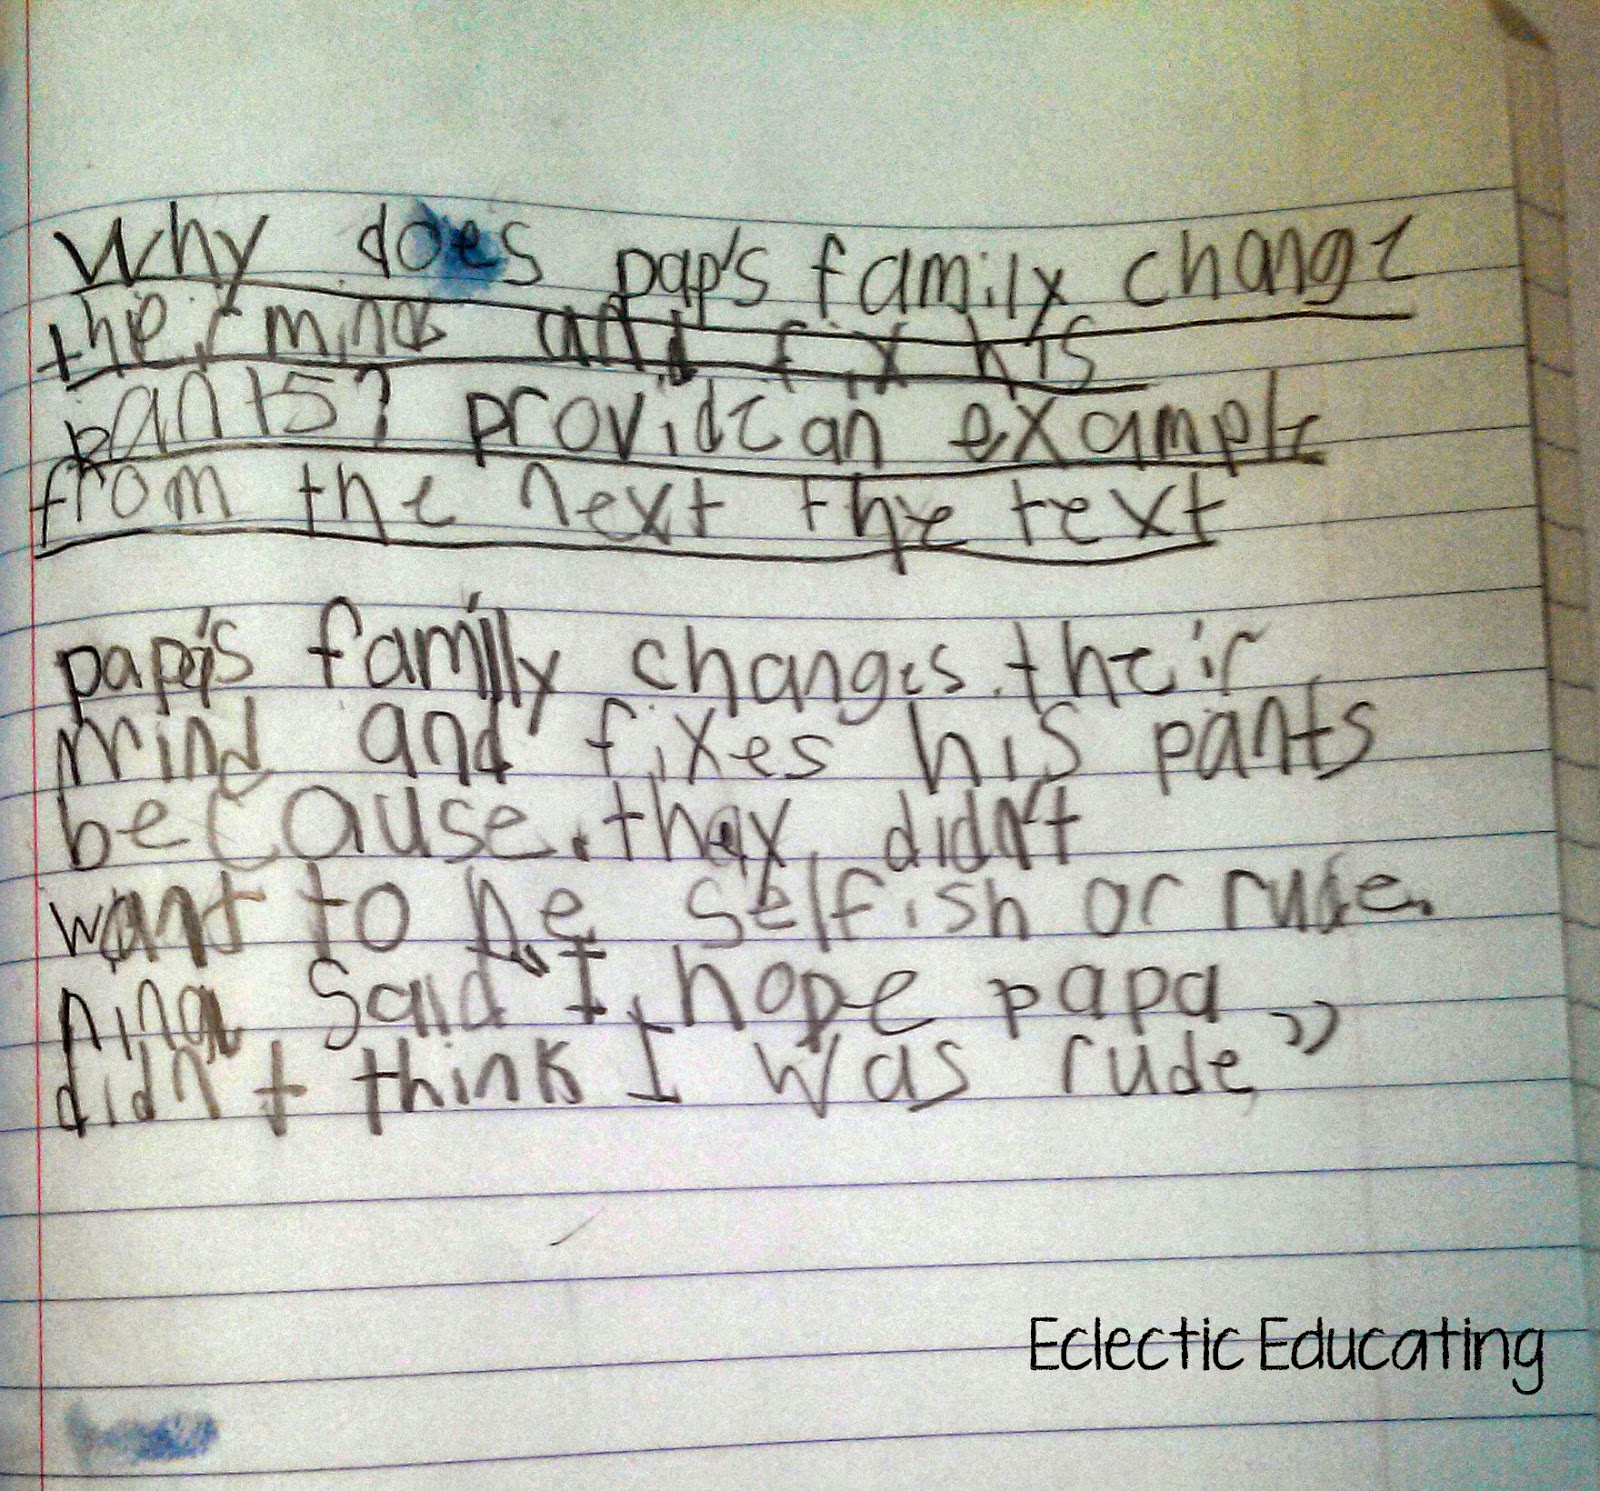 Why does pap's family change
their mind and fix his
pants? provide an example
from the next the text
papa's family changes their
mind and fixes his pants
because they didn't
want to be selfish or rude.
nina said "I hope papa
didn't think I was rude"
Eclectic Educating